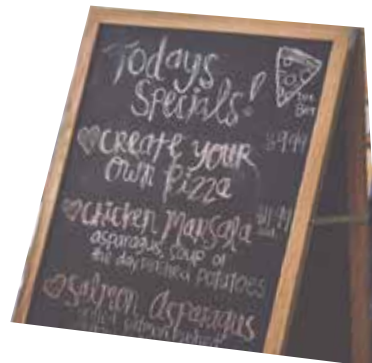 Todays
Specials!
CREATE YOUR
OWN Pizza
$9.99
CHICKEN MARSALA
asparagus, soup of
the day, mashed potatoes
Salmon Asparagus